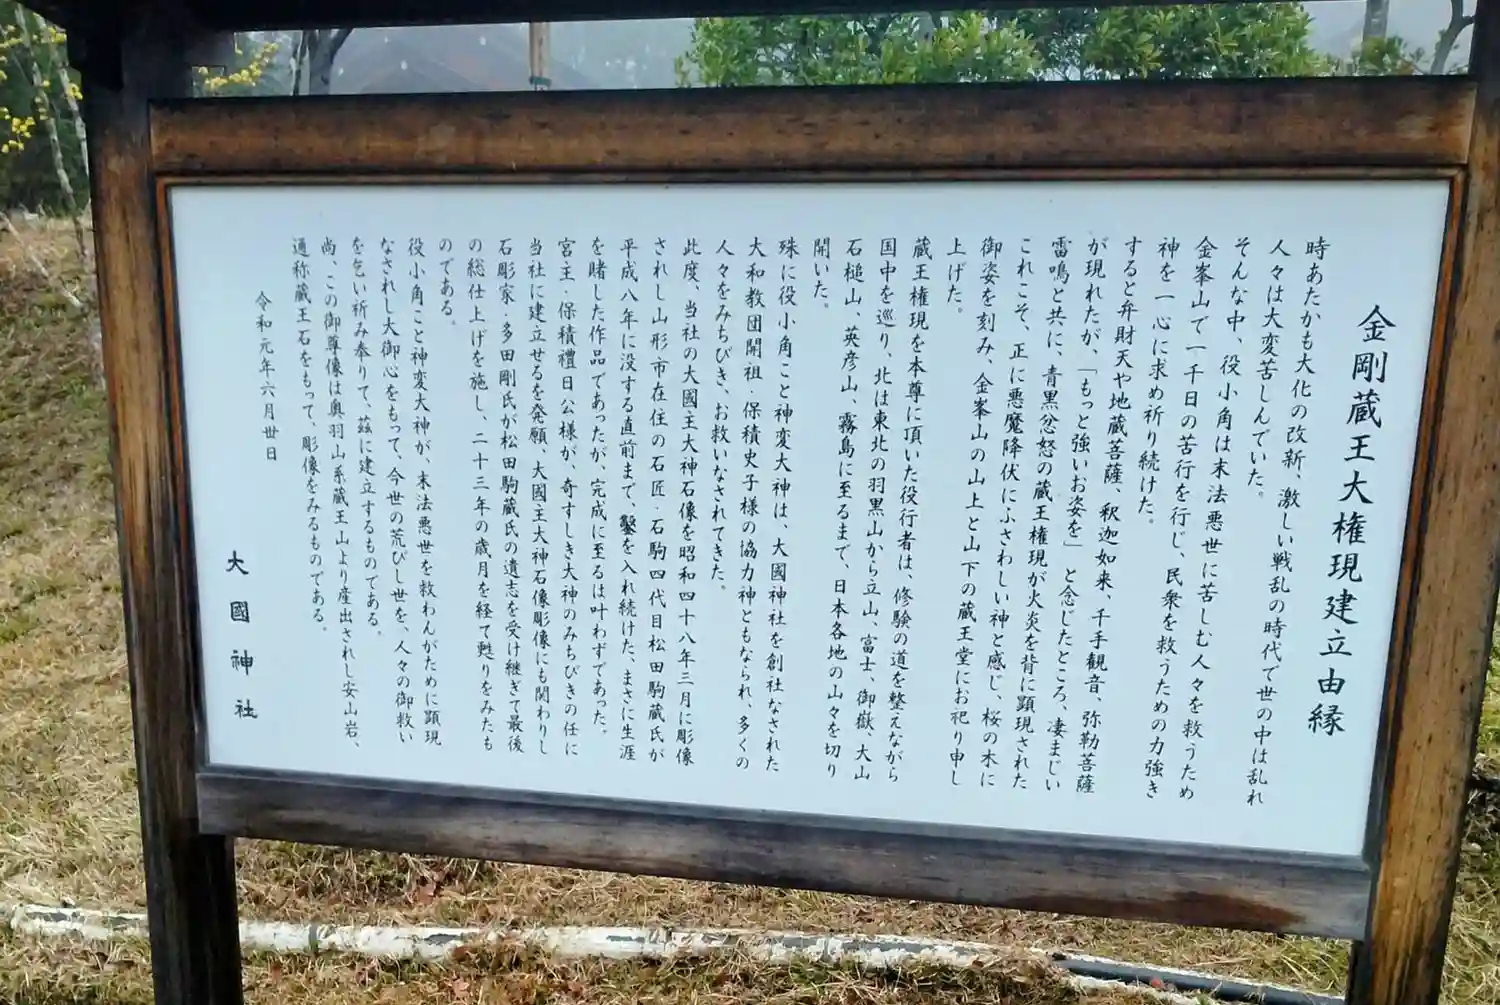 金剛蔵王大権現建立由縁
時あたかも大化の改新、激しい戦乱の時代で世の中は乱れ
人々は大変苦しんでいた。
そんな中、役小角は末法悪世に苦しむ人々を救うため
金峯山で一千日の苦行を行じ、民衆を救うための力強き
神を一心に求め祈り続けた。
すると弁財天や地蔵菩薩、釈迦如来、千手観音、弥勒菩薩
が現れたが、「もっと強いお姿を」と念じたところ、凄まじい
雷鳴と共に、青黒忿怒の蔵王権現が火炎を背に顕現された
これこそ、正に悪魔降伏にふさわしい神と感じ、桜の木に
御姿を刻み、金峯山の山上と山下の蔵王堂にお祀り申し
上げた。
蔵王権現を本尊に頂いた役行者は、修験の道を整えながら
国中を巡り、北は東北の羽黒山から立山、富士、御嶽、大山
石槌山、英彦山、霧島に至るまで、日本各地の山々を切り
開いた。
殊に役小角こと神変大神は、大國神社を創社なされた
大和教団開祖・保積史子様の協力神ともなられ、多くの
人々をみちびき、お救いなされてきた。
此度、当社の大國主大神石像を昭和四十八年三月に彫像
されし山形市在住の石匠・石駒四代目松田駒蔵氏が
平成八年に没する直前まで、鑿を入れ続けた、まさに生涯
を賭した作品であったが、完成に至るは叶わずであった。
宮主・保積禮日公様が、奇すしき大神のみちびきの任に
当社に建立せるを発願、大國主大神石像彫像にも関わりし
石彫家・多田剛氏が松田駒蔵氏の遺志を受け継ぎて最後
の総仕上げを施し、二十三年の歳月を経て甦りをみたも
のである。
役小角こと神変大神が、末法悪世を救わんがために顕現
なされし大御心をもって、今世の荒びし世を、人々の御救い
を乞い祈み奉りて、茲に建立するものである。
尚、この御尊像は奥羽山系蔵王山より産出されし安山岩、
通称蔵王石をもって、彫像をみるものである。
令和元年六月丗日
大國神社